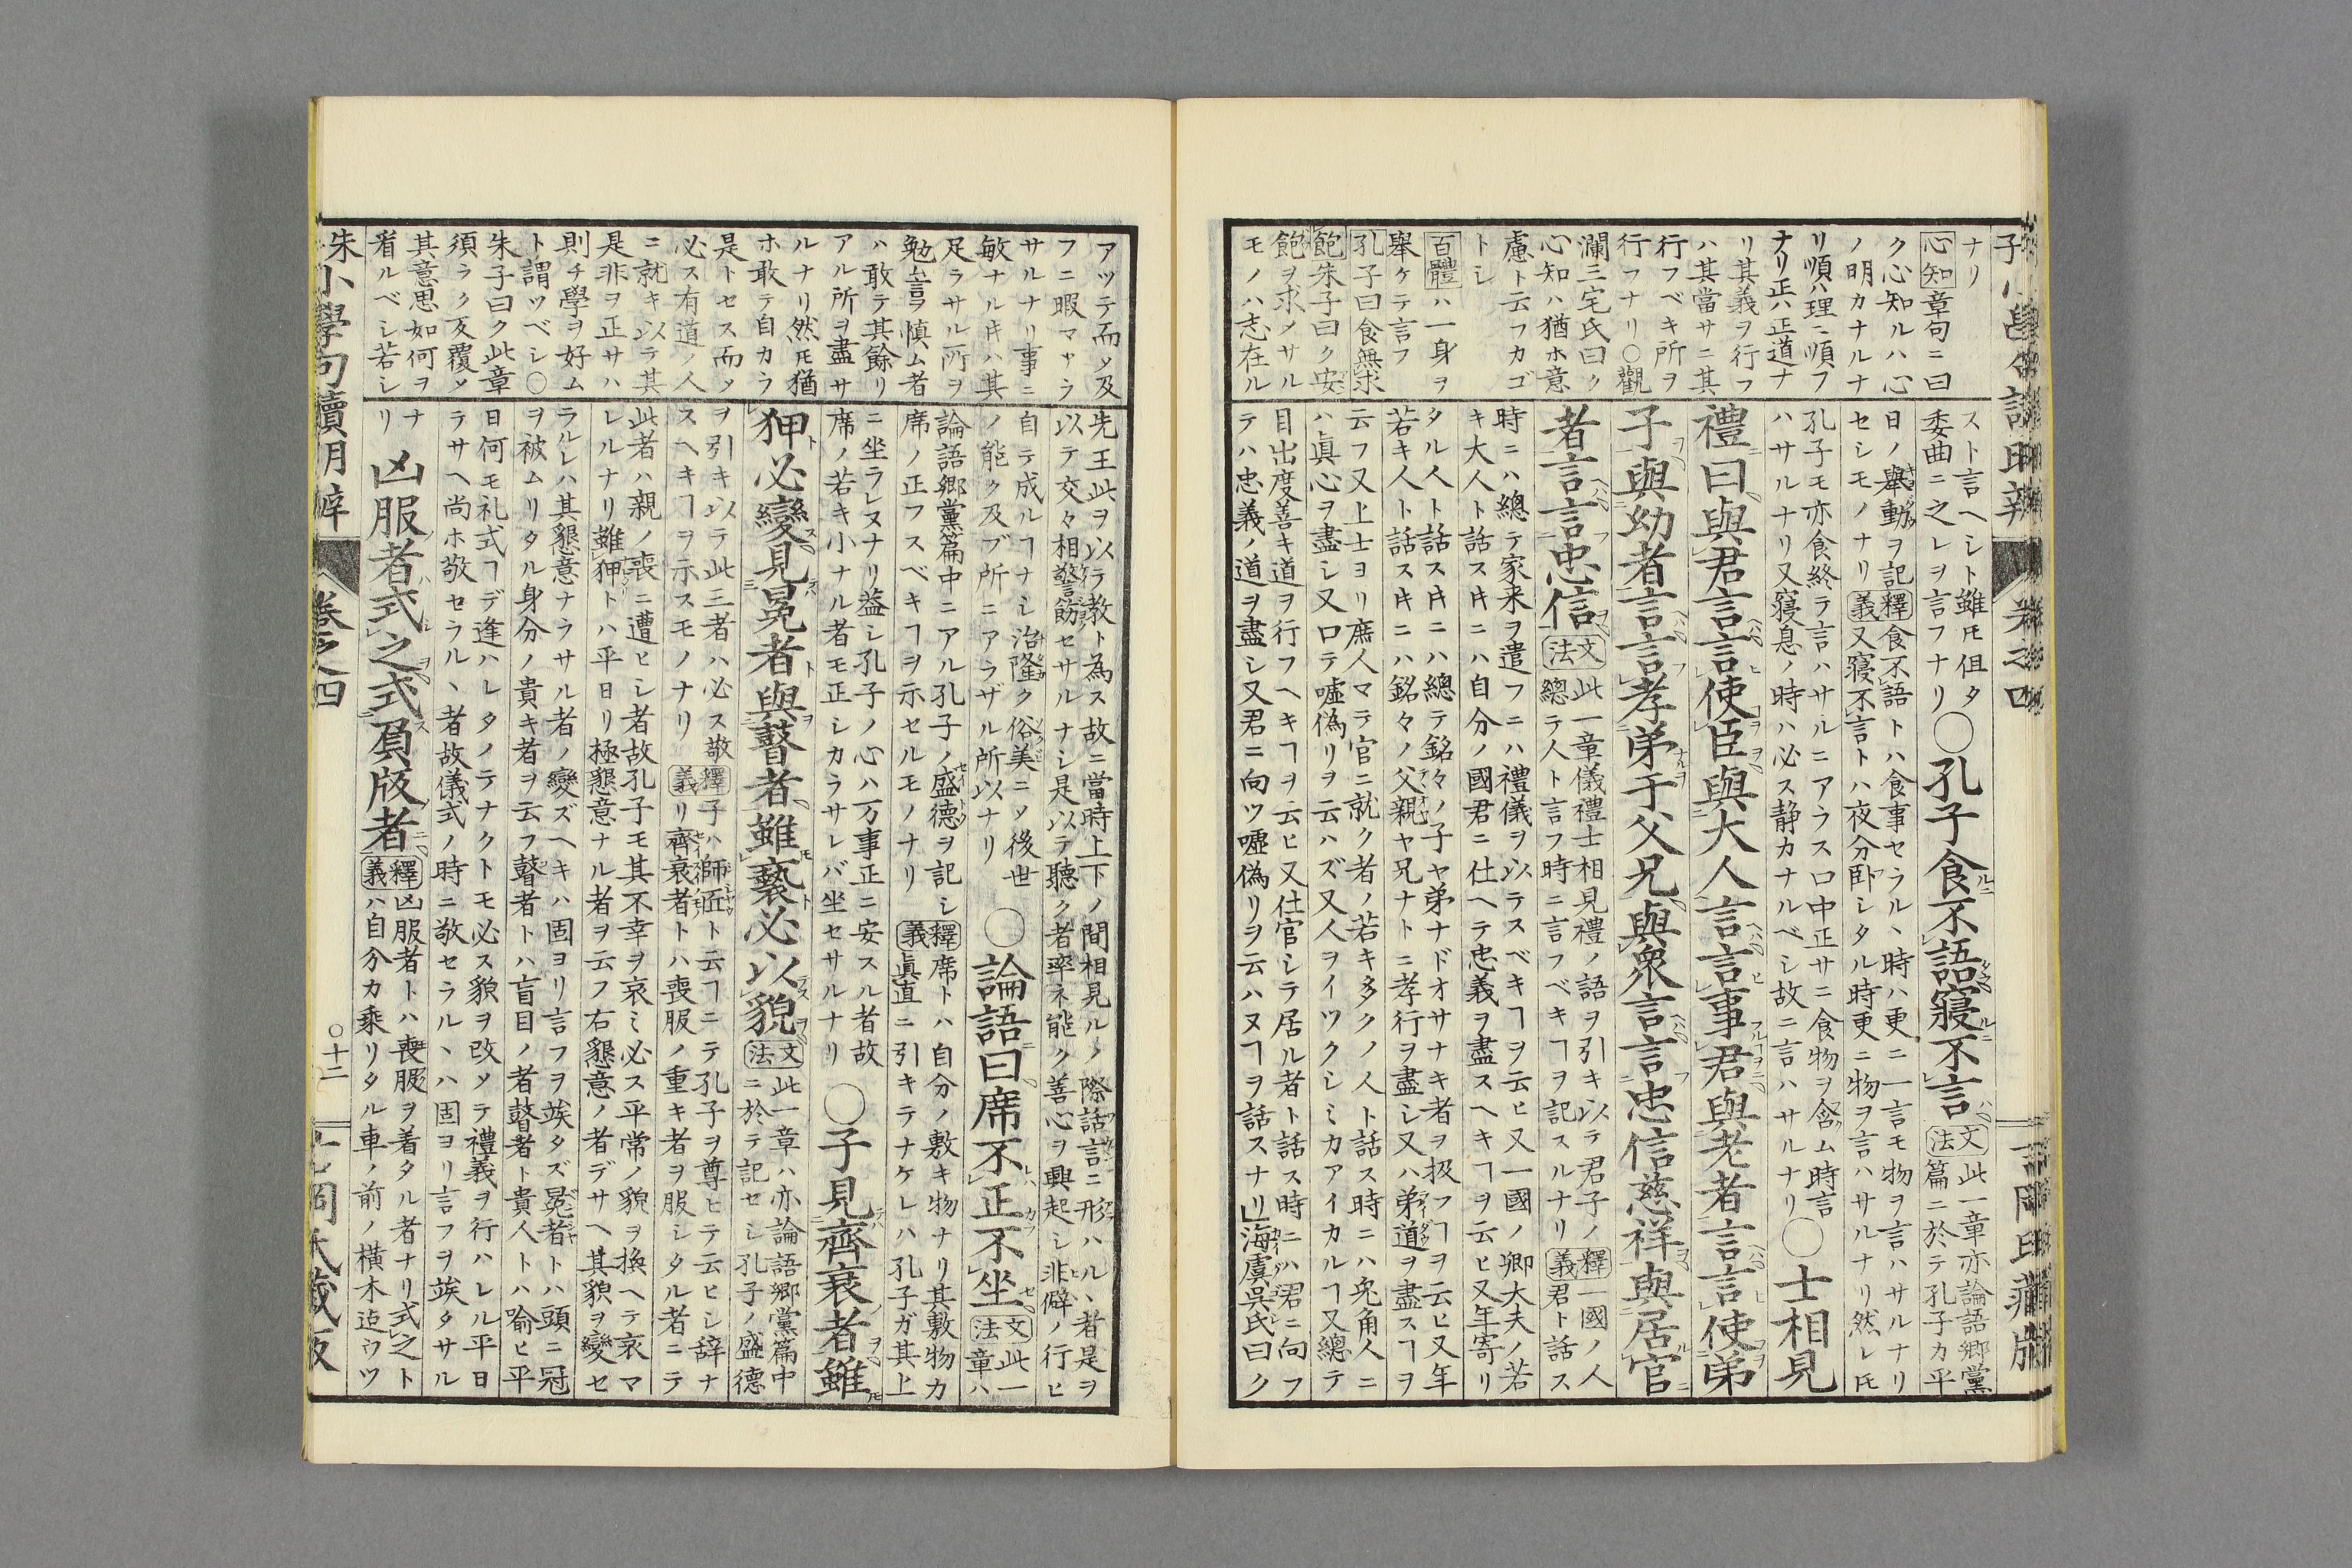 ナリ
心知章句ニ曰
ク心知ルハ心
ノ明カナルナ
リ順ハ理ニ順フ
ナリ正ハ正道ナ
リ其義ヲ行フ
ハ其當サニ其
行フベキ所ヲ
行フナリ○觀
瀾三宅氏曰ク
心知ハ猶ホ意
慮ト云フカゴ
トシ
百體ハ一身ヲ
舉ケテ言フ
孔子曰食無求
飽朱子曰ク安
飽ヲ求メサル
モノハ志在ル
スト言ヘシト雖𪜈伹タ
委曲ニ之レヲ言フナリ
○孔子食不語寢不言
文法此一章亦論語鄉黨
篇ニ於テ孔子カ平
日ノ舉動ヲ記釋食不語トハ食事セラルヽ時ハ更ニ一言モ物ヲ言ハサルナリ
セシモノナリ義又寢不言トハ夜分卧シタル時更ニ物ヲ言ハサルナリ然レ𪜈
孔子モ亦食終ラテ言ハサルニアラス口中正サニ食物ヲ含ム時言
ハサルナリ又寢息ノ時ハ必ス静カナルベシ故ニ言ハサルナリ
○士相見
禮曰與君言言使臣與大人言言事君與老者言言使弟
子與幼者言言孝弟于父兄與衆言言忠信慈祥與居官
者言言忠信
文法此一章儀禮士相見禮ノ語ヲ引キ以テ君子ノ
總テ人ト言フ時ニ言フベキヿヲ記スルナリ
釋義一國ノ人
君ト話ス
時ニハ總テ家来ヲ遣フニハ禮儀ヲ以テスベキヿヲ云ヒ又一國ノ卿大夫ノ若
キ大人ト話ス𪜈ニハ自分ノ國君ニ仕ヘテ忠義ヲ盡スヘキヿヲ云ヒ又年寄リ
タル人ト話ス𪜈ニハ總テ銘々ノ子ヤ弟ナドオサナキ者ヲ扱フヿヲ云ヒ又年
若キ人ト話ス𪜈ニハ銘々ノ父親ヤ兄ナトニ孝行ヲ盡シ又ハ弟道ヲ盡スヿヲ
云フ又上士ヨリ庶人マテ官ニ就ク者ノ若キ多クノ人ト話ス時ニハ兎角人ニ
ハ眞心ヲ盡シ又口テ嘘偽リヲ云ハズ又人ヲイツクシミカアイカルヿ又總テ
目出度善キ道ヲ行フヘキヿヲ云ヒ又仕官シテ居ル者ト話ス時ニハ君ニ向フ
テハ忠義ノ道ヲ盡シ又君ニ向ツ嘘偽リヲ云ハヌヿヲ話スナリ」海虞吳氏曰ク
アツテ而メ及
フニ暇マアラ
サルナリ事ニ
敏ナル𪜈ハ其
足ラサル所ヲ
勉言ヲ慎ム者
ハ敢テ其餘リ
アル所ヲ盡サ
ルナリ然𪜈猶
ホ敢テ自カラ
是トセス而メ
必ス有道ノ人
ニ就キ以テ其
是非ヲ正サハ
則チ學ヲ好ム
ト謂ツベシ○
朱子曰ク此章
須ラク反覆メ
其意思如何ヲ
看ルベシ若シ
先王此ヲ以テ教ト為ス故ニ當時上下ノ間相見ルノ際話言ニ形ハルヽ者是ヲ
以テ交々相警飭セサルナシ是以テ聽ク者率ネ能ク善心ヲ興起シ非僻ノ行ヒ
自テ成ルヿナシ治隆ク俗美ニメ後世
ノ能ク及ブ所ニアラザル所以ナリ
○論語曰席不正不坐
文法此一
章ハ
論語鄉黨篇中ニアル孔子ノ盛德ヲ記シ
席ノ正フスベキヿヲ示セルモノナリ
釋義席トハ自分ノ敷キ物ナリ其敷物カ
眞直ニ引キテナケレハ孔子ガ其上
ニ坐ラレヌナリ蓋シ孔子ノ心ハ万事正ニ安スル者故
席ノ若キ小ナル者モ正シカラサレバ坐セサルナリ
○子見齊衰者雖
狎必變見冕者與瞽者雖褻必以貌
文法此一章ハ亦論語鄉黨篇中
ニ於テ記セシ孔子ノ盛德
ヲ引キ以テ此三者ハ必ス敬
スヘキヿヲ示スモノナリ
釋義子ハ師匠ト云フヿニテ孔子ヲ尊ヒテ云ヒシ辞ナ
リ齊衰者トハ喪服ノ重キ者ヲ服シタル者ニテ
此者ハ親ノ喪ニ遭ヒシ者故孔子モ其不幸ヲ哀ミ必ス平常ノ貌ヲ換ヘテ哀マ
レルナリ雖狎トハ平日リ極懇意ナル者ヲ云フ右懇意ノ者デサヘ其貌ヲ變セ
ラルレハ其懇意ナラサル者ノ變ズヘキハ固ヨリ言フヲ竢タズ冕者トハ頭ニ冠
ヲ被ムリタル身分ノ貴キ者ヲ云フ瞽者トハ盲目ノ者瞽者ト貴人トハ喻ヒ平
日何モ礼式ヿデ逢ハレタノテナクトモ必ス貌ヲ改メテ禮義ヲ行ハレル平日
ラサヘ尚ホ敬セラルヽ者故儀式ノ時ニ敬セラルヽハ固ヨリ言フヲ竢タサル
ナリ
凶服者式之式負版者
釋義凶服者トハ喪服ヲ着タル者ナリ式之ト
ハ自分カ乘リタル車ノ前ノ横木迠ウツ
朱小學句讀明辨 卷之四 ○十二